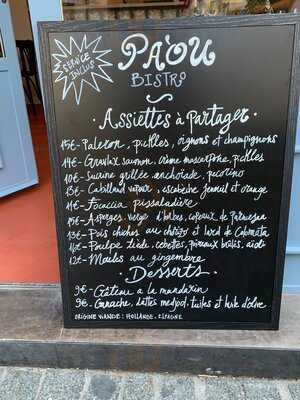 SERVICE
INCLUS
PA'OU
BISTRO
Assiettes à Partager
15€- Paleron, pickles, oignons et champignons
14€- Gravlax saumon, crème mascarpone, pickles
10€- Sucrine grillée anchoïade, pecorino
13€- Cabillaud vapeur, escabèche fenouil et orange
11€- Focaccia pissaladière
15€- Asperges, vierge d'herbes, copeaux de Parmesan
13€- Pois chiches au chorizo et lard de Colonnata
16€- Poulpe tiède, cebettes, poireaux brûlés, aïoli
12€- Moules au gingembre
Desserts
9€- Gâteau à la mandarin
9€- Ganache, dattes medjool, tuiles et huile d'olive
ORIGINE VIANDE : HOLLANDE, ESPAGNE